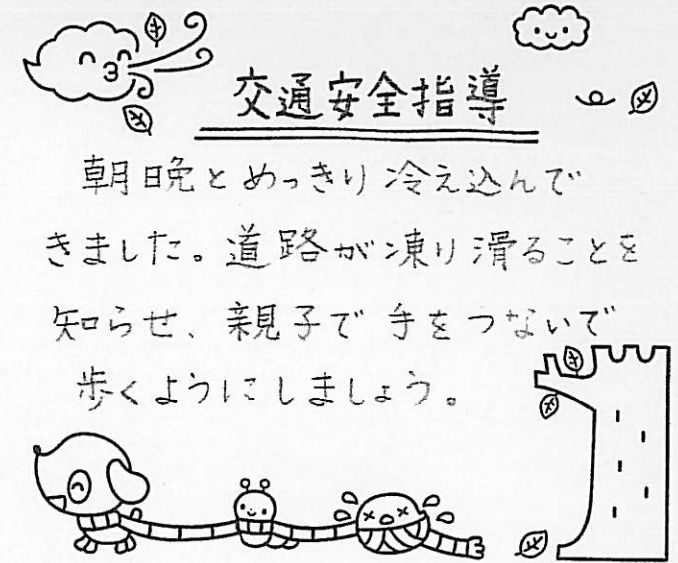 交通安全指導
朝晩とめっきり冷え込んで
きました。道路が凍り滑ることを
知らせ、親子で手をつないで
歩くようにしましょう。